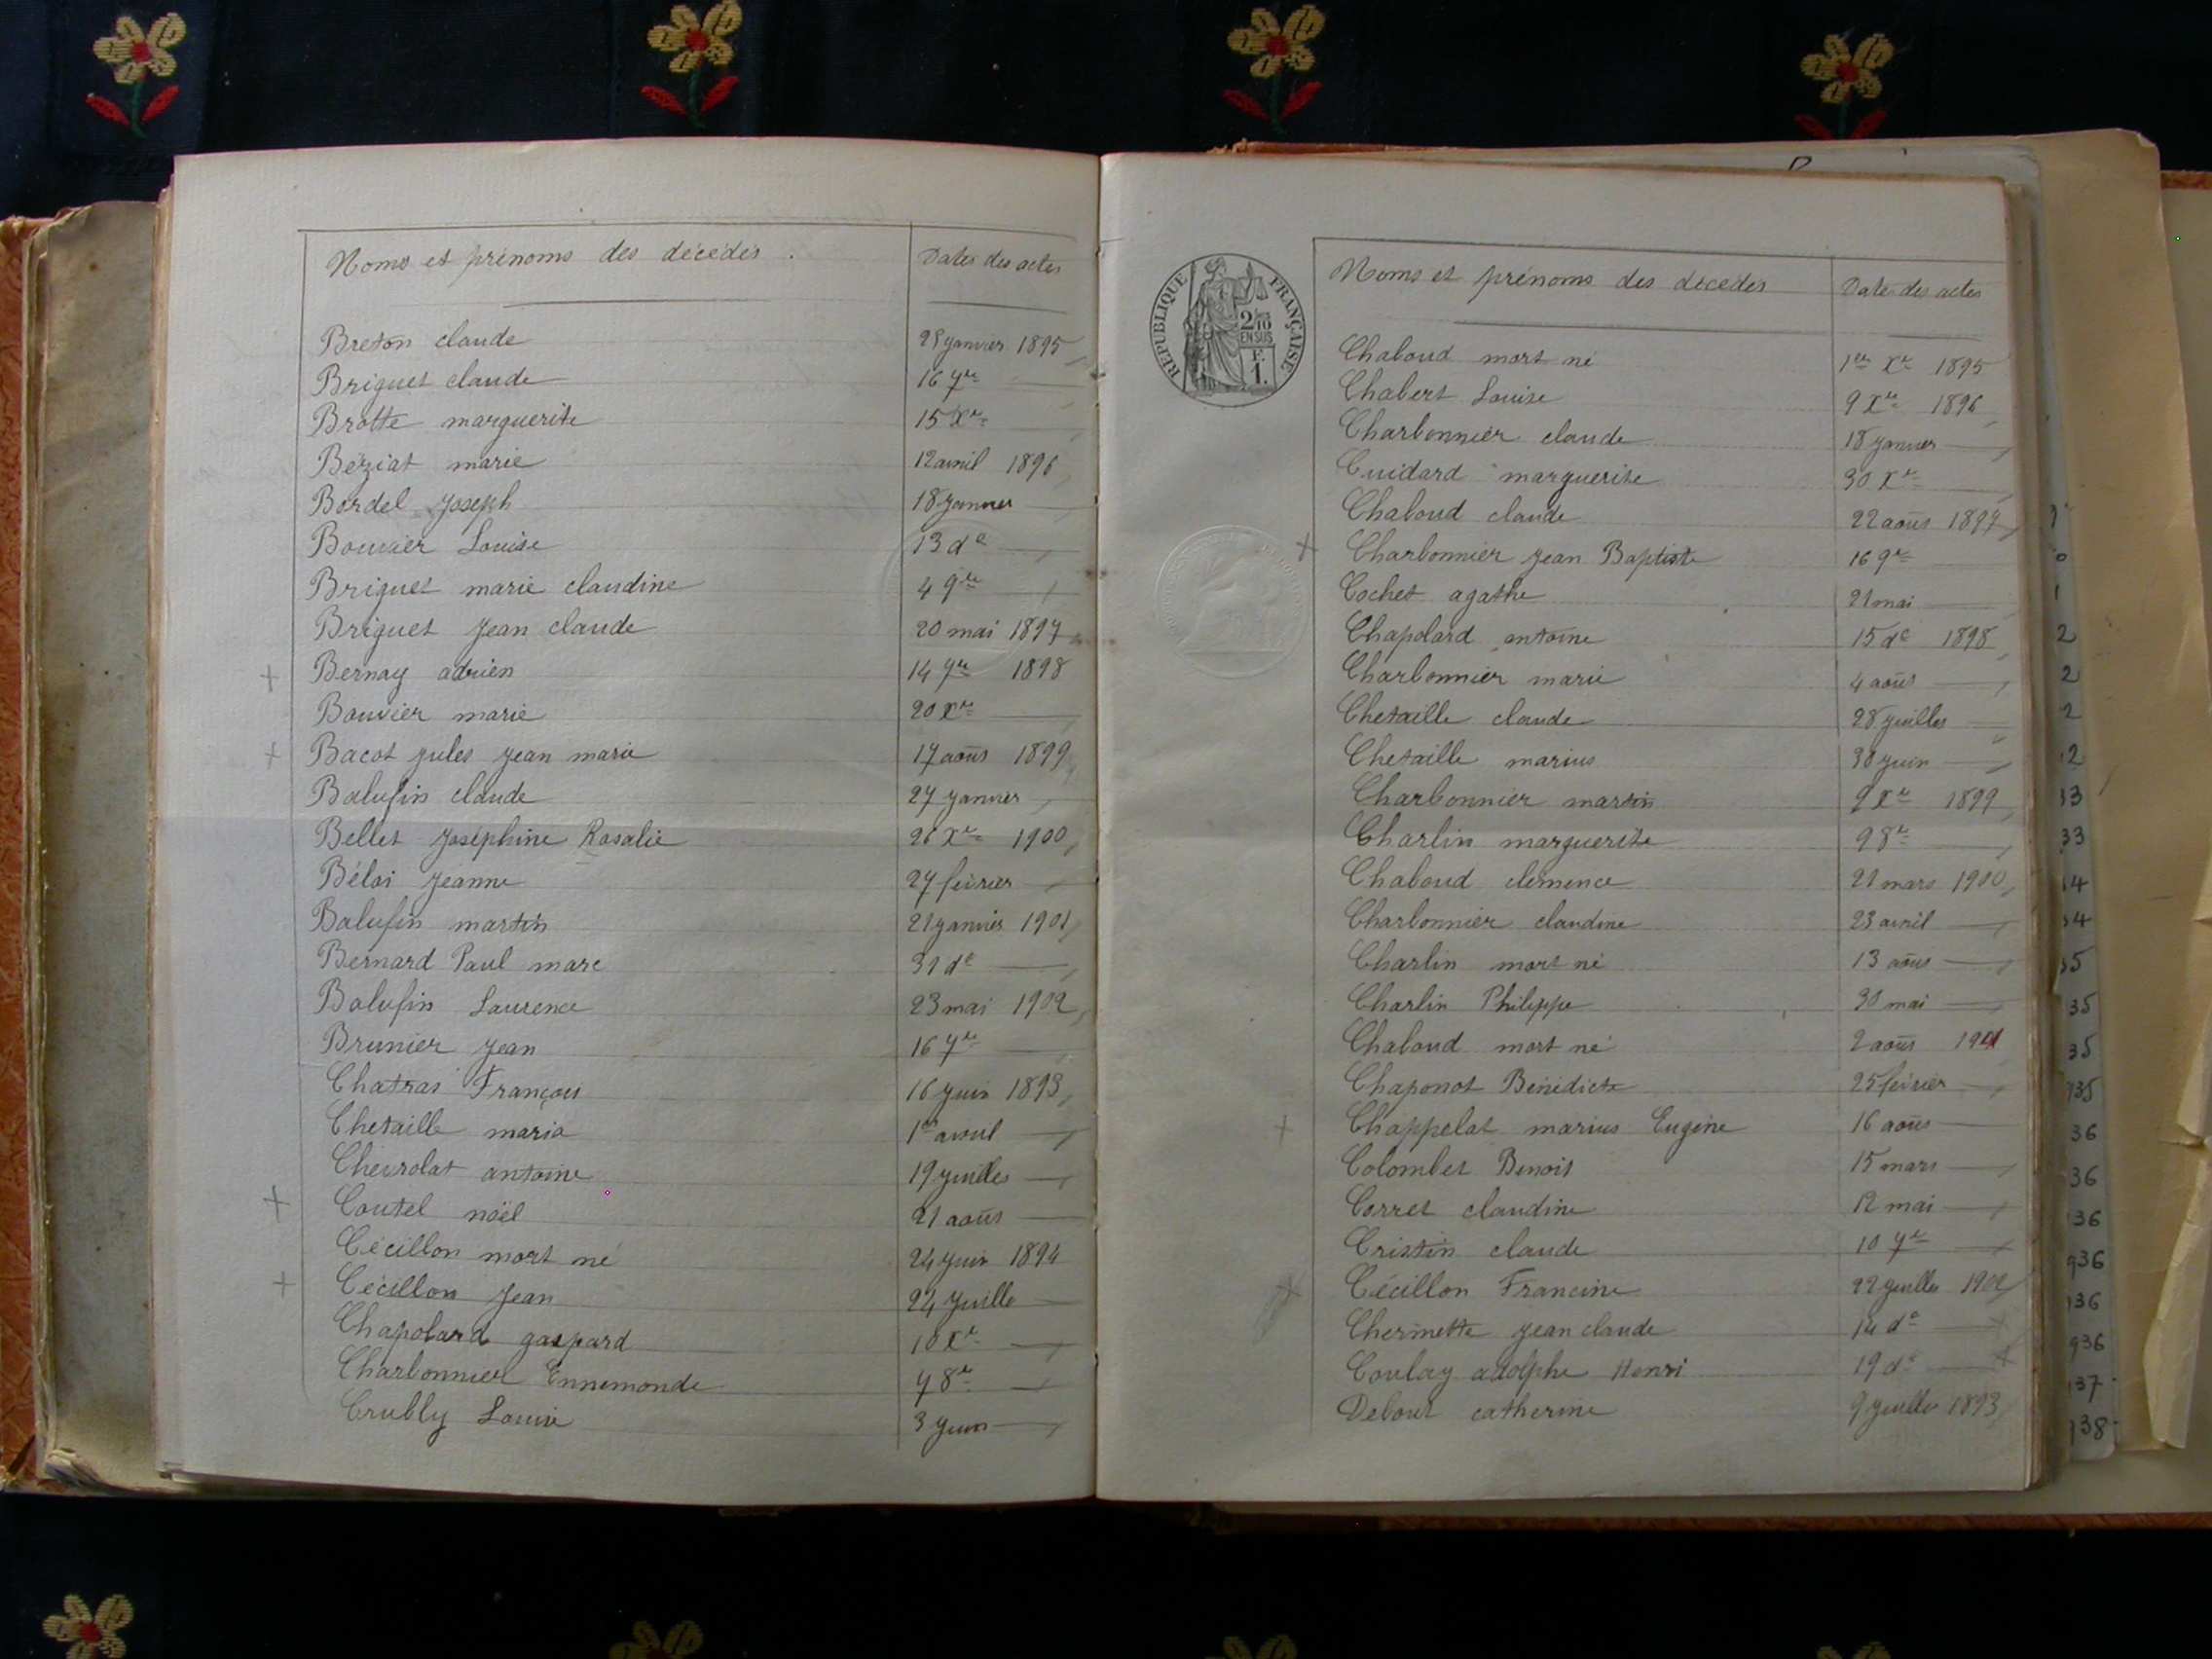 Noms et prénoms des décédés.
Dates des actes
Breton claude 28 janvier 1895
Briguet claude 16 7re
Brotte marguerite 15 Xre
Béziat marie 12 avril 1896
Bordel Joseph 18 janvier
Bouvier Louise 13 do
Briguet marie claudine 4 9re
Briguet Jean claude 20 mai 1897
+ Bernay adrien 14 7re 1898
Bouvier marie 20 Xre
+ Bacot jules Jean marie 17 août 1899
Balufin claude 27 janvier
Bellet Joséphine Rosalie 26 Xre 1900
Béloi Jeanne 27 février
Balufin martin 21 janvier 1901
Bernard Paul marc 31 do
Balufin Laurence 23 mai 1902
Brunier Jean 16 7re
Chatras François 16 juin 1893
Chetaille maria 1er avril
Chevrolat antoine 19 juillet
+ Coutel noël 21 août
Cécillon mort né 24 juin 1894
+ Cécillon Jean 24 juille
Chapolard gaspard 10 Xre
Charbonnier Ennemonde 7 8re
Crubly Louise 3 juin
REPUBLIQUE FRANÇAISE
2/10 EN SUS
F. 1.
Noms et prénoms des décédés
Dates des actes
Chaboud mort né 1er Xre 1895
Chabert Louise 9 Xre 1896
Charbonnier claude 18 janvier
Cuidard marguerite 30 Xre
Chaboud claude 22 août 1897
+ Charbonnier Jean Baptiste 16 9re
Cochet agathe 21 mai
Chapolard antoine 15 do 1898
Charbonnier marie 4 août
Chetaille claude 28 juillet
Chetaille marius 30 juin
Charbonnier martin 2 Xre 1899
Charlin marguerite 9 8re
Chaboud clémence 21 mars 1900
Charbonnier claudine 23 avril
Charlin mort né 13 août
Charlin Philippe 30 mai
Chaboud mort né 2 août 1901
Chaponot Bénédicte 25 février
+ Chappelat marius Eugène 16 août
Colombet Benoit 15 mars
Corret claudine 12 mai
Cristin claude 10 7re
+ Cécillon Francine 22 juillet 1902
Chermette Jean claude 14 do
Coulay adolphe Henri 19 do
Debout catherine 9 juillet 1893
2
2
2
12
33
33
34
34
35
35
35
935
36
36
936
936
936
936
937
938